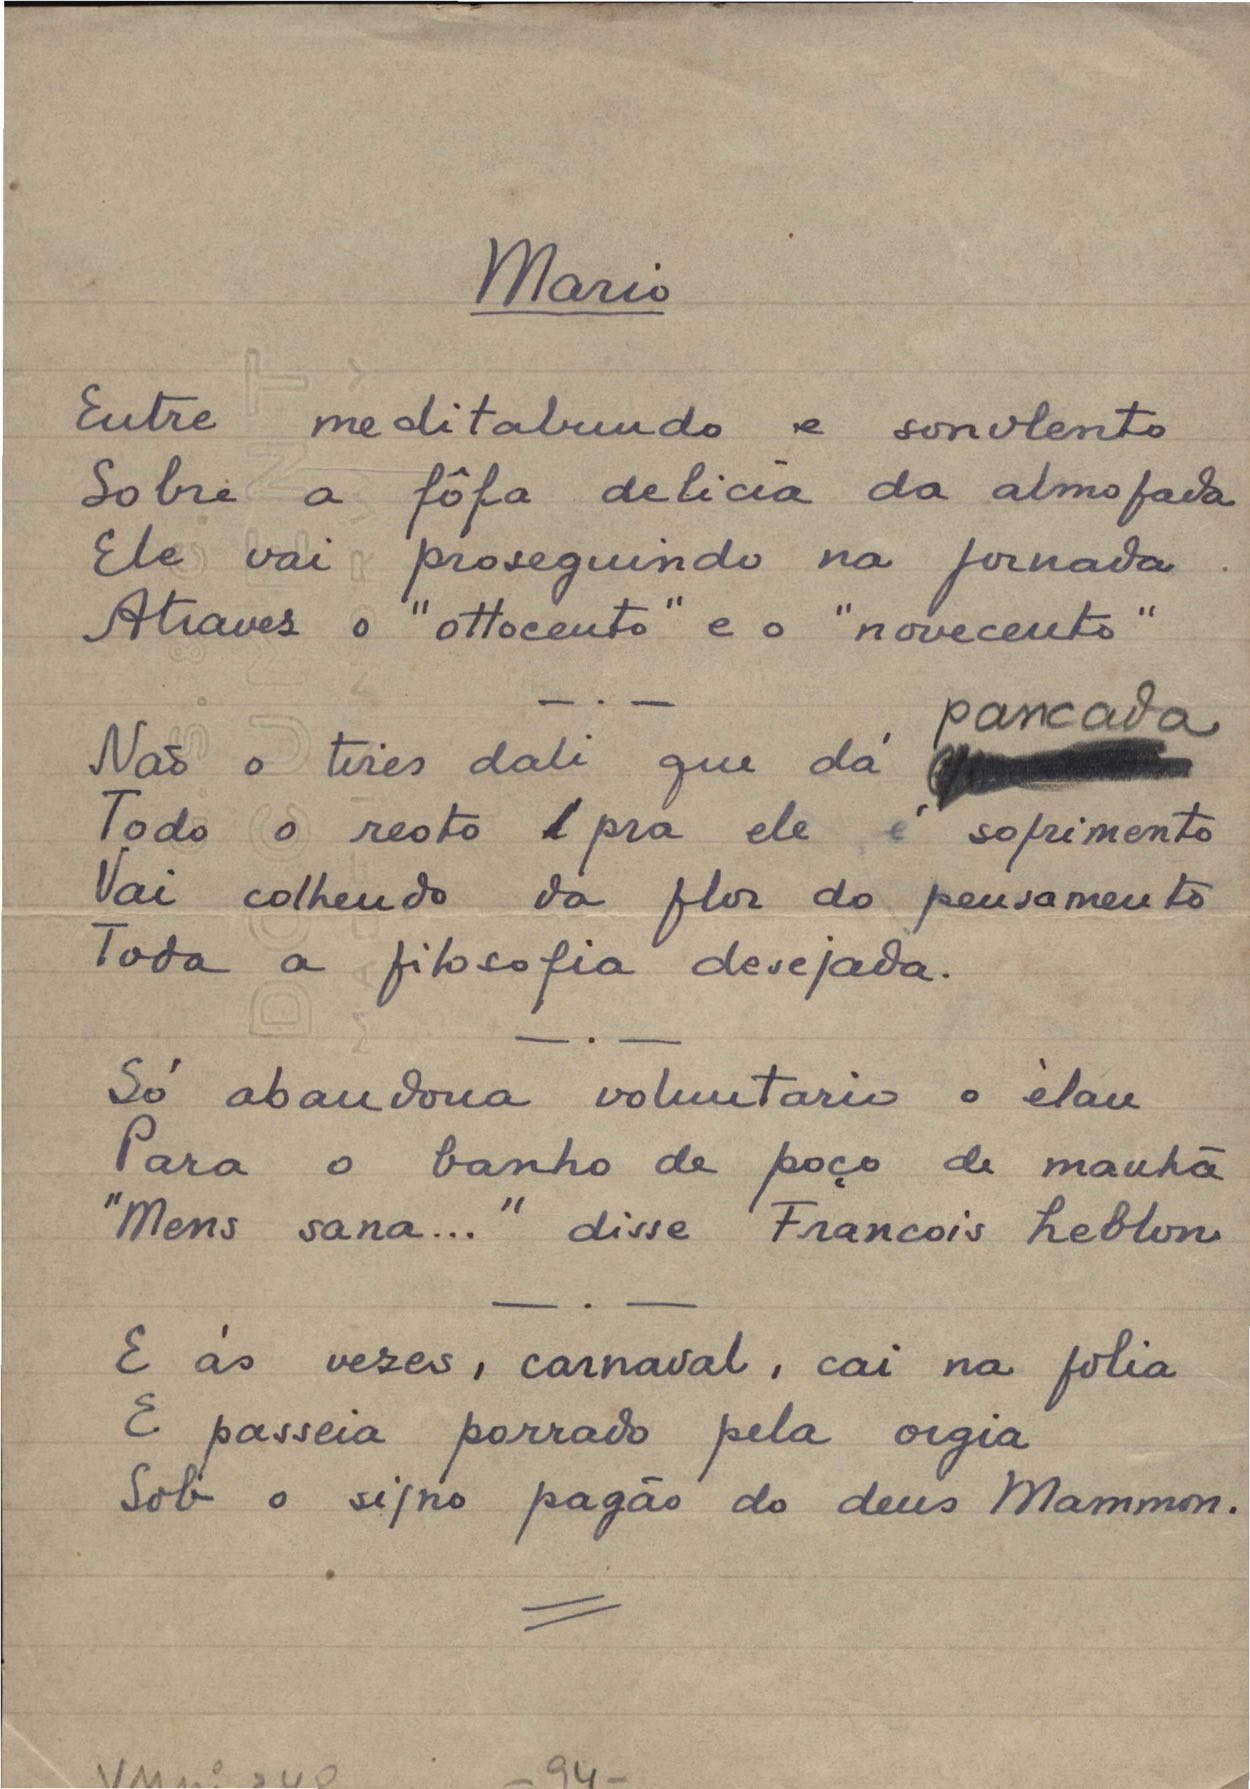 Mario
Entre meditabundo e sonolento
Sobre a fôfa delicia da almofada
Ele vai proseguindo na jornada
Atravez o "ottocento" e o "novecento"
— . —
Não o tires dali que dá pancada
Todo o resto pra ele é sofrimento
Vai colhendo da flor do pensamento
Toda a filosofia desejada.
— . —
Só abandona voluntario o èlan
Para o banho de poço de manhã
"Mens sana..." disse Francois Leblon
— . —
E ás vezes, carnaval, cai na folia
E passeia porrado pela orgia
Sob o signo pagão do deus Mammon.
-94-